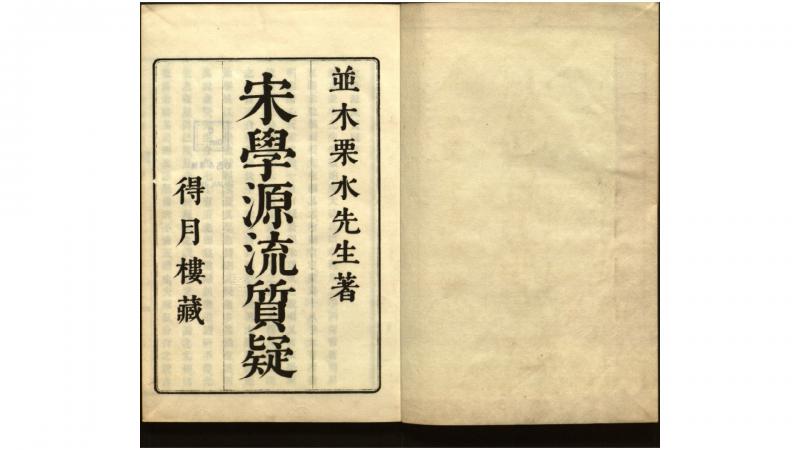 並木栗水先生著
宋學源流質疑
得月樓藏